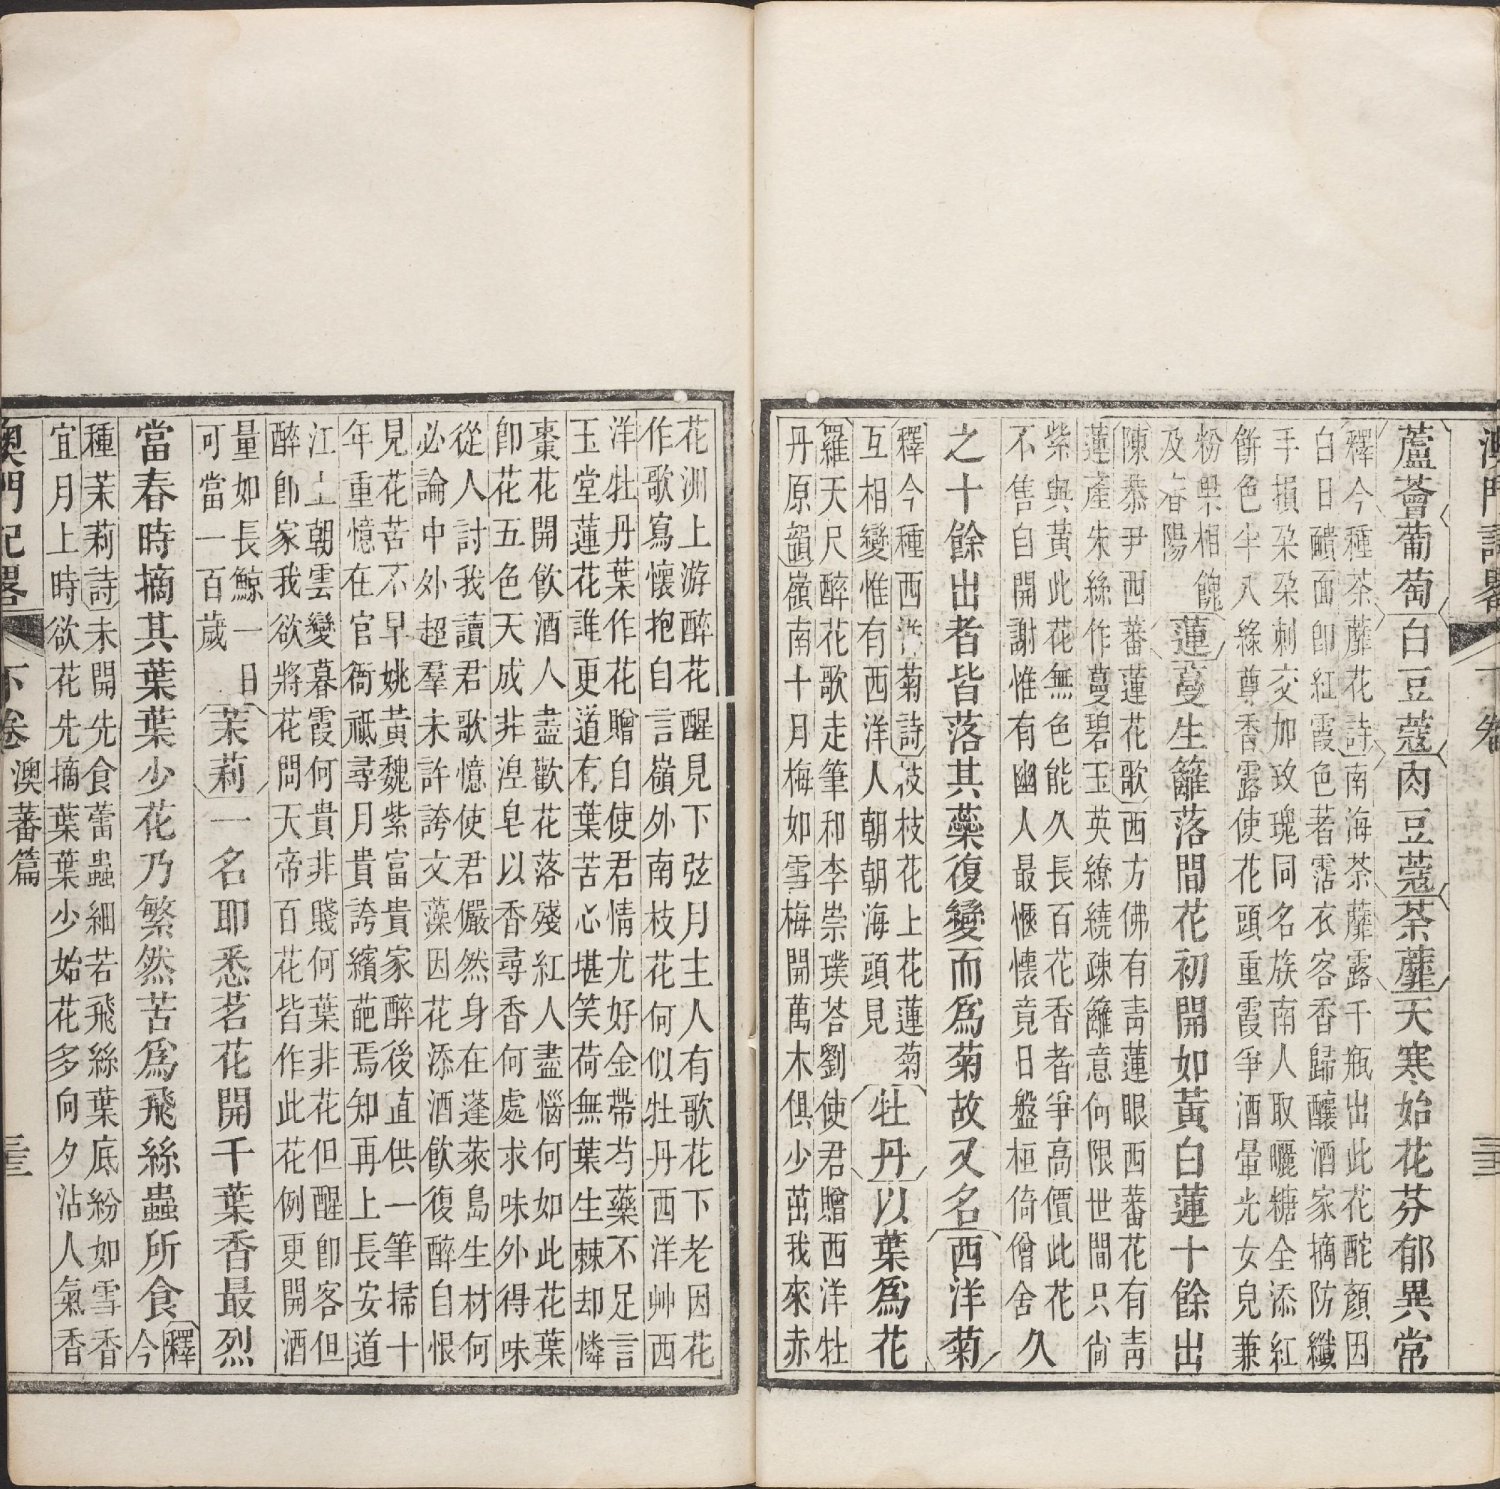 蘆薈葡萄白豆蔻肉豆蔻荼蘼天寒始花芬郁異常
釋今種荼蘼花詩南海荼蘼露千瓶出此花酡顏因
白日醺面卽紅霞色著霑衣客香歸釀酒家摘防纖
手損朶朶刺交加玫瑰同名族南人取曬糖全添紅
餅色半入綠尊香露使花頭重霞爭酒暈光女兒兼
粉果相餽
及春陽
蓮蔓生籬落間花初開如黃白蓮十餘出
陳恭尹西蕃蓮花歌西方佛有靑蓮眼西蕃花有靑
蓮產朱絲作蔓碧玉英繚繞疎籬意何限世間只尙
紫與黃此花無色能久長百花香者爭高價此花
不售自開謝惟有幽人最愜懷竟日盤桓倚僧舍久
之十餘出者皆落其蘂復變而爲菊故又名西洋菊
釋今種西洋菊詩枝枝花上花蓮菊
互相變惟有西洋人朝朝海頭見
牡丹以葉爲花
羅天尺醉花歌走筆和李崇璞荅劉使君贈西洋牡
丹原韻嶺南十月梅如雪梅開萬木俱少茁我來赤
花洲上游醉花醒見下弦月主人有歌花下老因花
作歌寫懷抱自言嶺外南枝花何似牡丹西洋艸西
洋牡丹葉作花贈自使君情尤好金帶芍藥不足言
玉堂蓮花誰更道有葉苦心堪笑荷無葉生棘却憐
棗花開飮酒人盡歡花落殘紅人盡惱何如此花葉
卽花五色天成非湼皂以香尋香何處求味外得味
從人討我讀君歌憶使君儼然身在蓬萊島生材何
必論中外超羣未許誇文藻因花添酒飮復醉自恨
見花苦不早姚黃魏紫富貴家醉後直供一筆掃十
年重憶在官衙祗尋月貴誇繽葩焉知再上長安道
江上朝雲變暮霞何貴非賤何葉非花但醒卽客但
醉卽家我欲將花問天帝百花皆作此花例更開酒
量如長鯨一日
可當一百歲
茉莉一名耶悉茗花開千葉香最烈
當春時摘其葉葉少花乃繁然苦爲飛絲蟲所食釋今
種茉莉詩未開先食蕾蟲細若飛絲葉底紛如雪香
宜月上時欲花先摘葉葉少始花多向夕沾人氣香
澳門記畧 下卷 澳蕃篇 三十三